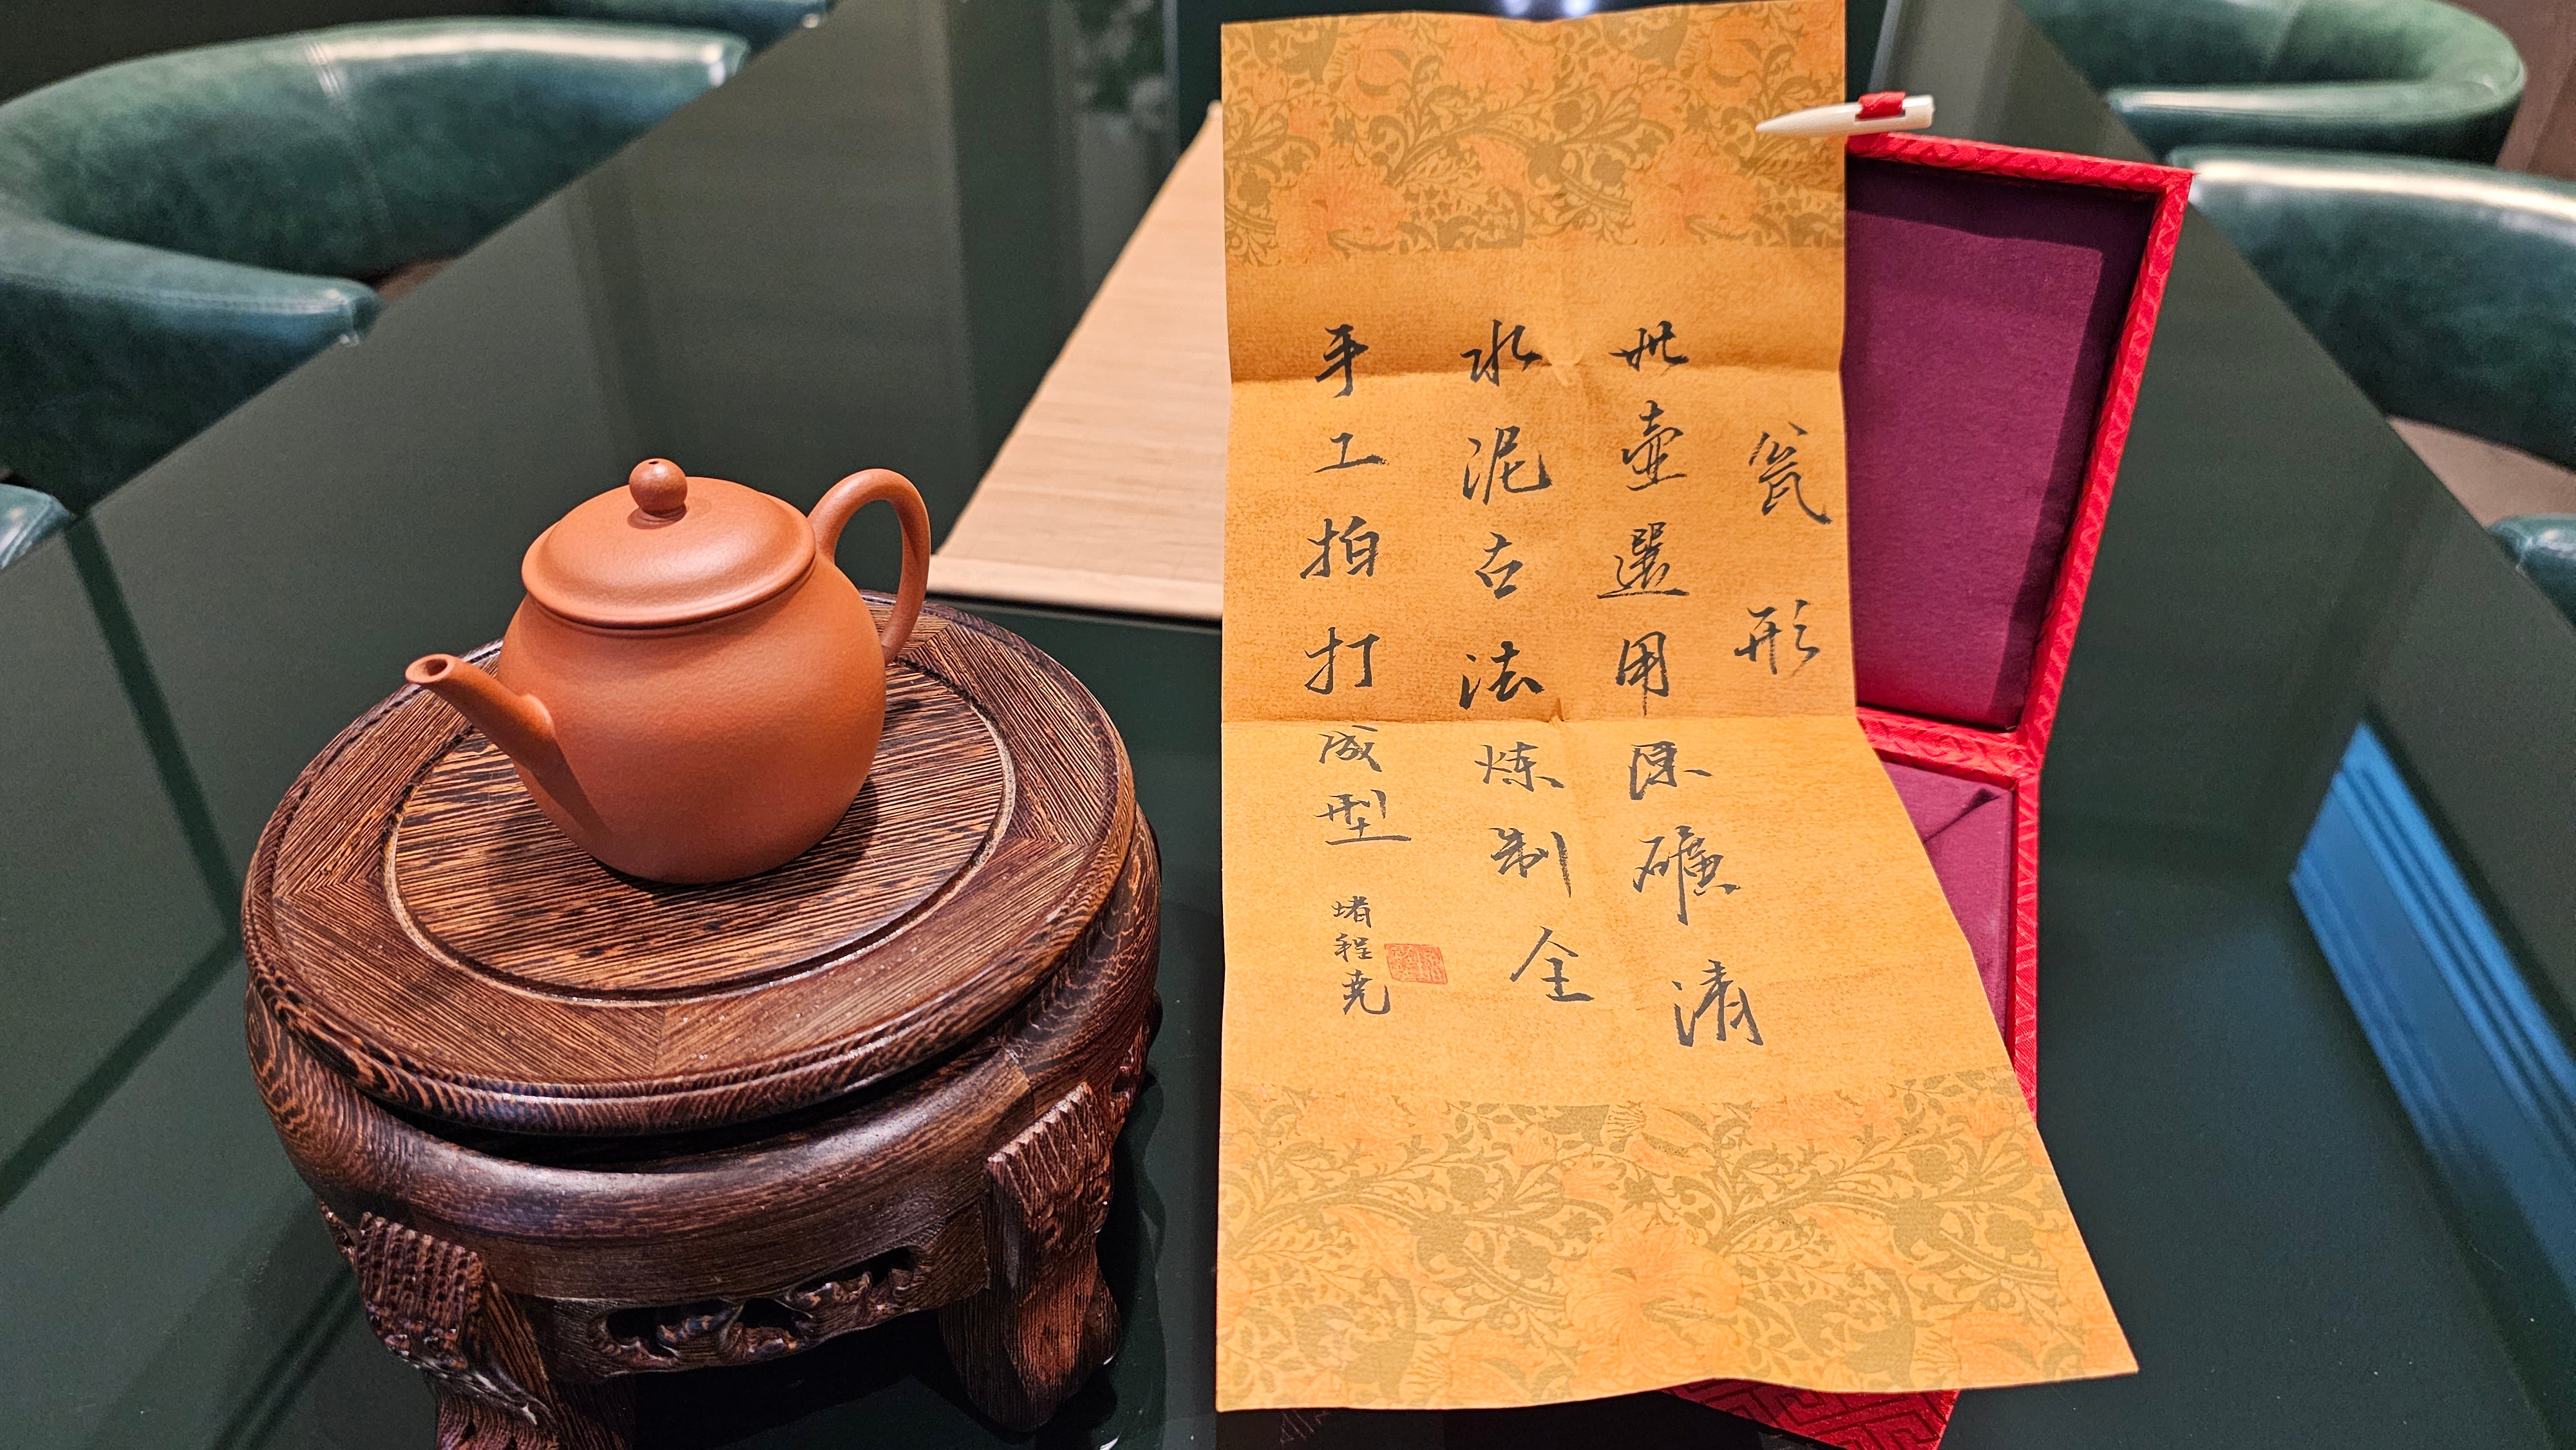 瓮形
此壶選用原礦清
水泥古法炼制全
手工拍打成型
堵程尧